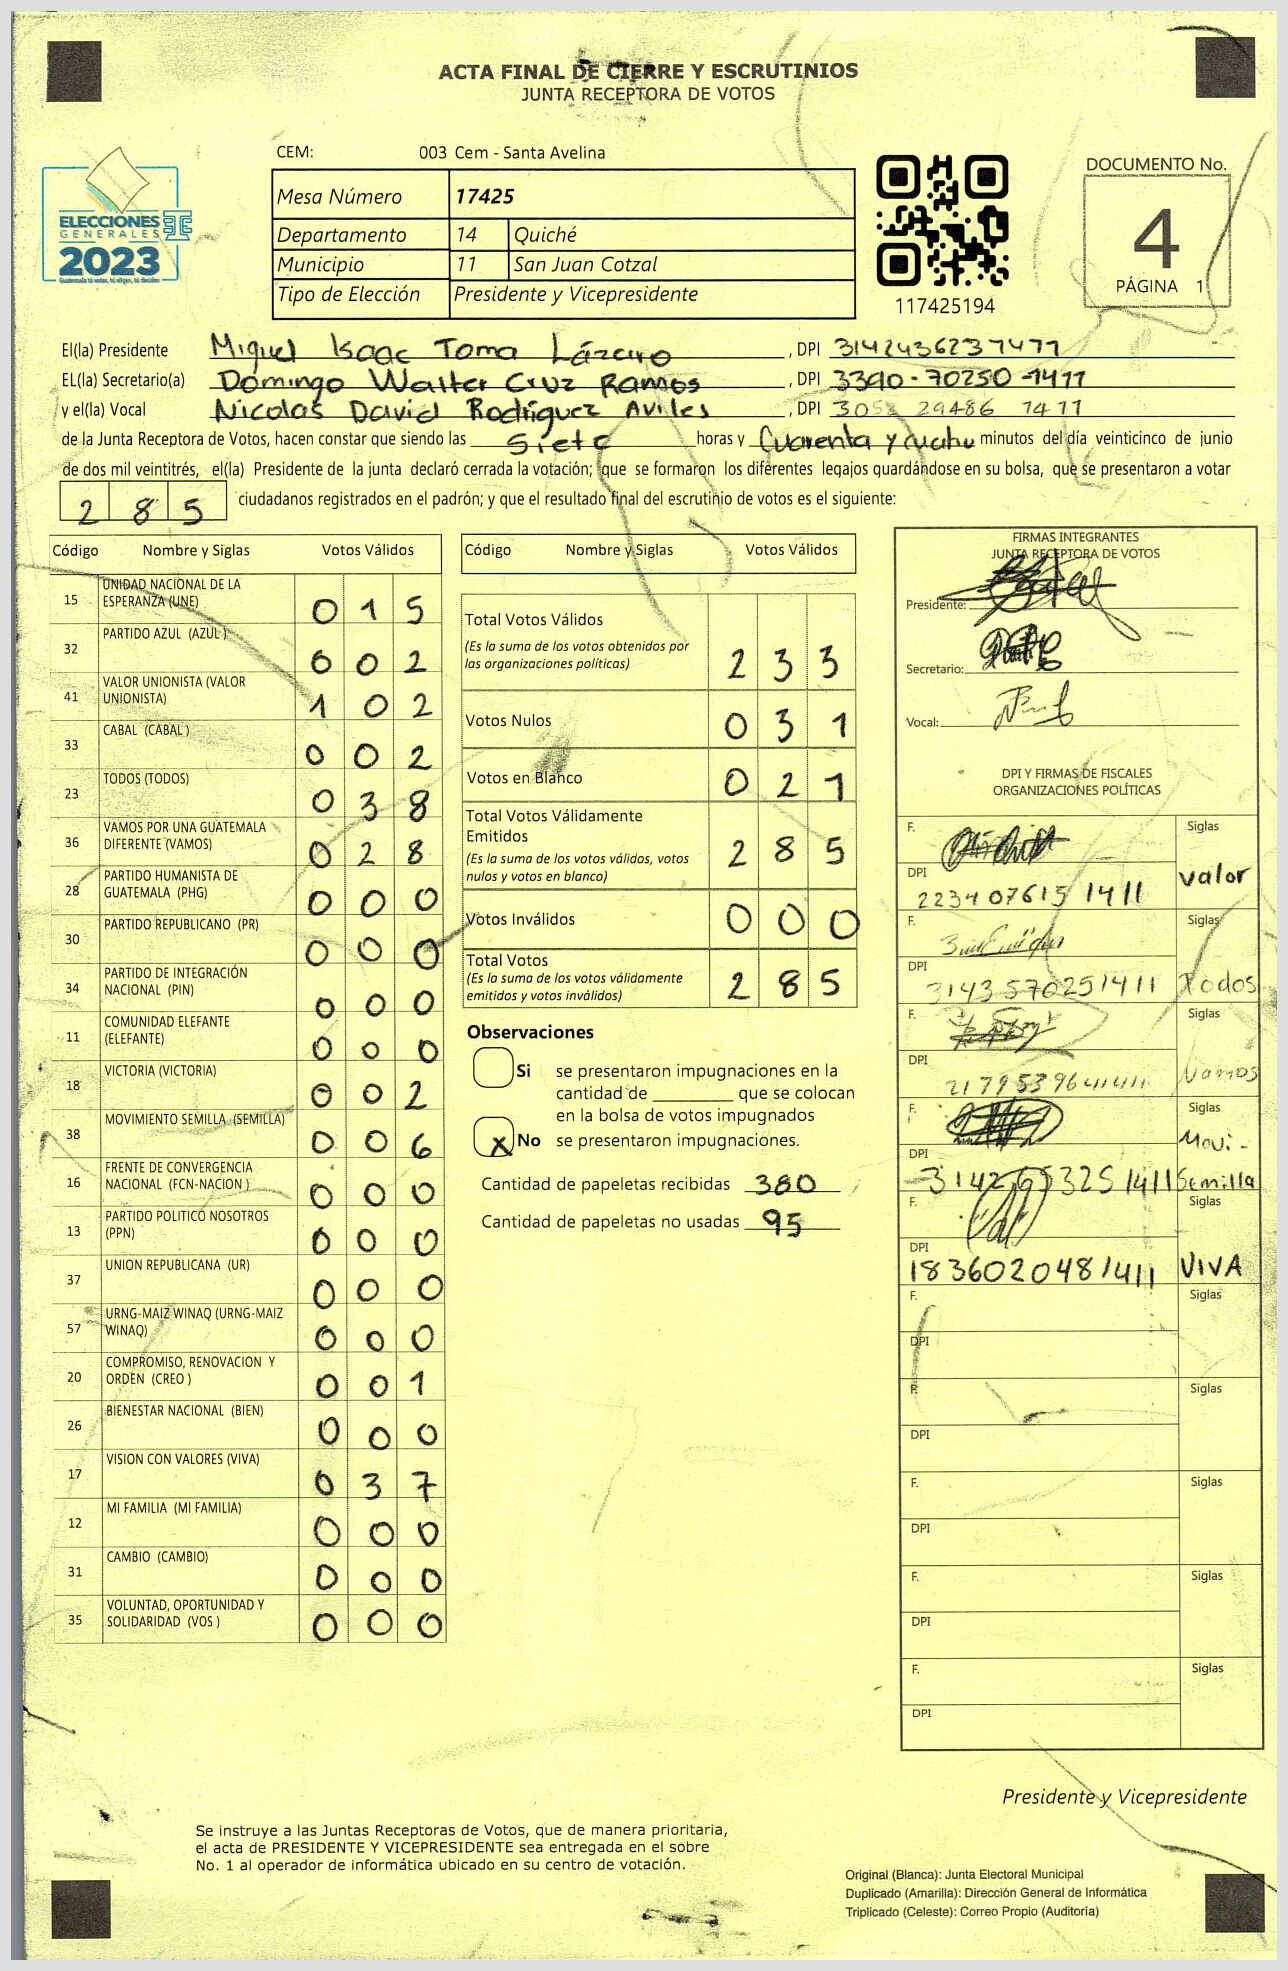 ACTA FINAL DE CIERRE Y ESCRUTINIOS
JUNTA RECEPTORA DE VOTOS
CEM: 003 Cem - Santa Avelina
ELECCIONES
GENERALES
2023
Guatemala tú votas, tú eliges, tú decides
Mesa Número 17425
Departamento 14 Quiché
Municipio 11 San Juan Cotzal
Tipo de Elección Presidente y Vicepresidente
117425194
DOCUMENTO No.
4
PÁGINA 1
El(la) Presidente Miguel Isaac Toma Lázaro, DPI 3142436237477
EL(la) Secretario(a) Domingo Walter Cruz Ramos, DPI 3390-70250-1411
y el(la) Vocal Nicolas David Rodríguez Aviles, DPI 29486 1411
de la Junta Receptora de Votos, hacen constar que siendo las Siete horas y Cuarenta y cuatro minutos del día veinticinco de junio
de dos mil veintitrés, el(la) Presidente de la junta declaró cerrada la votación; que se formaron los diferentes legajos guardándose en su bolsa, que se presentaron a votar
285 ciudadanos registrados en el padrón; y que el resultado final del escrutinio de votos es el siguiente:
Código Nombre y Siglas Votos Válidos
15 UNIDAD NACIONAL DE LA ESPERANZA (UNE) 015
32 PARTIDO AZUL (AZUL ) 002
41 VALOR UNIONISTA (VALOR UNIONISTA) 102
33 CABAL (CABAL ) 002
23 TODOS (TODOS) 038
36 VAMOS POR UNA GUATEMALA DIFERENTE (VAMOS) 028
28 PARTIDO HUMANISTA DE GUATEMALA (PHG) 000
30 PARTIDO REPUBLICANO (PR) 000
34 PARTIDO DE INTEGRACIÓN NACIONAL (PIN) 000
11 COMUNIDAD ELEFANTE (ELEFANTE) 000
18 VICTORIA (VICTORIA) 002
38 MOVIMIENTO SEMILLA (SEMILLA) 006
16 FRENTE DE CONVERGENCIA NACIONAL (FCN-NACION ) 000
13 PARTIDO POLITICO NOSOTROS (PPN) 000
37 UNION REPUBLICANA (UR) 000
57 URNG-MAIZ WINAQ (URNG-MAIZ WINAQ) 000
20 COMPROMISO, RENOVACION Y ORDEN (CREO ) 001
26 BIENESTAR NACIONAL (BIEN) 000
17 VISION CON VALORES (VIVA) 037
12 MI FAMILIA (MI FAMILIA) 000
31 CAMBIO (CAMBIO) 000
35 VOLUNTAD, OPORTUNIDAD Y SOLIDARIDAD (VOS ) 000
Código Nombre y Siglas Votos Válidos
Total Votos Válidos 233
(Es la suma de los votos obtenidos por
las organizaciones políticas)
Votos Nulos 031
Votos en Blanco 021
Total Votos Válidamente
Emitidos 285
(Es la suma de los votos válidos, votos
nulos y votos en blanco)
Votos Inválidos 000
Total Votos 285
(Es la suma de los votos válidamente
emitidos y votos inválidos)
Observaciones
Si se presentaron impugnaciones en la
cantidad de ________ que se colocan
en la bolsa de votos impugnados
x No se presentaron impugnaciones.
Cantidad de papeletas recibidas 380
Cantidad de papeletas no usadas 95
FIRMAS INTEGRANTES
JUNTA RECEPTORA DE VOTOS
Presidente:
Secretario:
Vocal:
DPI Y FIRMAS DE FISCALES
ORGANIZACIONES POLÍTICAS
F. Siglas
DPI 2234 07615 1411 Valor
F. Siglas
DPI 3143570251411 Todos
F. Siglas
DPI 2179539641411 Vamos
F. Siglas
Movi-
DPI 1411 Semilla
F. Siglas
DPI 1836020481411 VIVA
F. Siglas
DPI
F. Siglas
DPI
F. Siglas
DPI
F. Siglas
DPI
F. Siglas
DPI
Presidente y Vicepresidente
Se instruye a las Juntas Receptoras de Votos, que de manera prioritaria,
el acta de PRESIDENTE Y VICEPRESIDENTE sea entregada en el sobre
No. 1 al operador de informática ubicado en su centro de votación.
Original (Blanca): Junta Electoral Municipal
Duplicado (Amarilla): Dirección General de Informática
Triplicado (Celeste): Correo Propio (Auditoría)